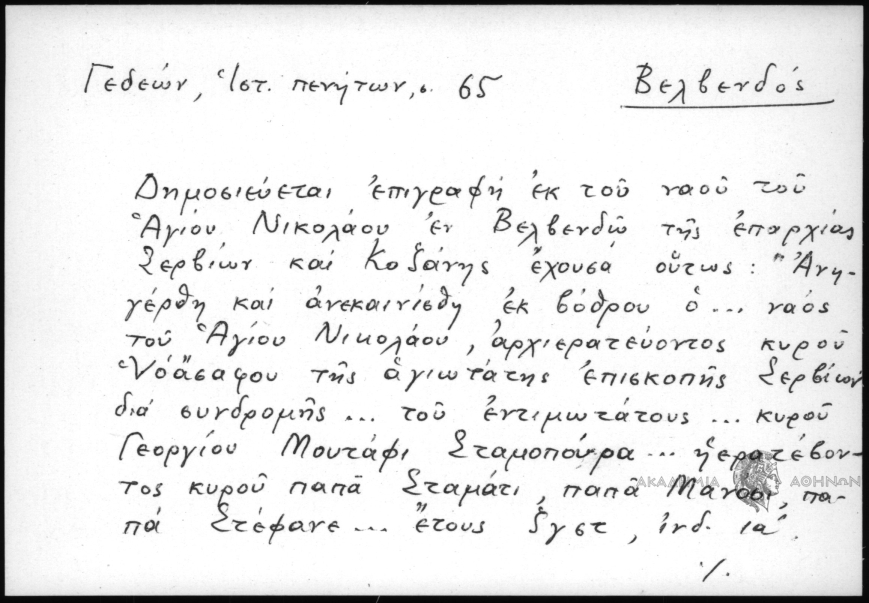 Γεδεών, Ἱστ. πενήτων, σ. 65 Βελβενδός
Δημοσιεύεται ἐπιγραφή ἐκ τοῦ ναοῦ τοῦ
Ἁγίου Νικολάου ἐν Βελβενδῷ τῆς ἐπαρχίας
Σερβίων καί Κοζάνης ἔχουσα οὕτως: "Ἀνη-
γέρθη καί ἀνεκαινίσθη ἐκ βόθρου ὁ ... ναός
τοῦ Ἁγίου Νικολάου, ἀρχιερατεύοντος κυροῦ
τῆς ἁγιωτάτης ἐπισκοπῆς Σερβίων
διά συνδρομῆς ... τοῦ ἐντιμωτάτους ... κυροῦ
Γεοργίου Μουτάφι Σταμοπούρα ... ἡερατέβον-
τος κυροῦ παπᾶ Σταμάτι, παπᾶ Μανόσι, πα-
πά Στέφανε ... ἔτους ͵ζγστ, ἰνδ. ια΄.
./.
ΑΚΑΔΗΜΙΑ ΑΘΗΝΩΝ